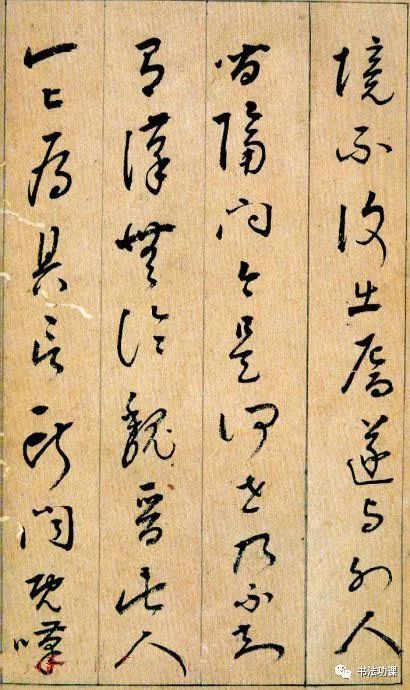 境不復出焉遂與外人
間隔問今是何世乃不知
有漢無論魏晉此人
一一為具言所聞皆嘆
书法功课